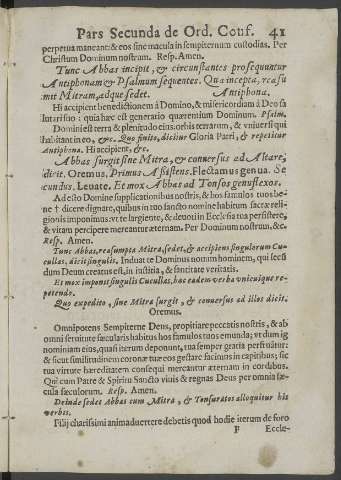 Pars Secunda de Ord. Conf. 41
perpetua maneant: & eos sine macula in sempiternum custodias. Per
Christum Dominum nostrum. Resp. Amen.
Tunc Abbas incipit, & circunstantes prosequuntur
Antiphonam & Psalmum sequentes. Qua incepta, reasu
mit Mitram, atque sedet. Antiphona.
Hi accipient benedictionem à Domino, & misericordiam à Deo sa
lutari suo: quia hæc est generatio quærentium Dominum. Psalm.
Domini est terra & plenitudo eius, orbis terrarum, & vniuersi qui
habitant in eo, &c. Quo finito, dicitur Gloria Patri, & repetitur
Antiphona. Hi accipient, &c.
Abbas surgit sine Mitra, & conuersus ad Altare,
dicit. Oremus, Primus Assistens. Flectamus genua. Se
cundus. Leuate. Et mox Abbas ad Tonsos genuflexos.
Adesto Domine supplicationibus nostris, & hos famulos tuos be-
ne † dicere dignare, quibus in tuo sancto nomine habitum sacræ reli-
gionis imponimus: vt te largiente, & deuoti in Ecclesia tua persistere,
& vitam percipere mercantur æternam. Per Dominum nostrum, &c.
Resp. Amen.
Tunc Abbas, reasumpta Mitra, sedet, & accipiens singulorum Cu-
cullas, dicit singulis. Induat te Dominus nouum hominem, qui secũ
dum Deum creatus est, in iustitia, & sanctitate veritatis.
Et mox imponit singulis Cucullas, hac eadem verba vnicuique re-
petendo.
Quo expedito, sine Mitra surgit, & conuersus ad illos dicit.
Oremus.
Omnipotens Sempiterne Deus, propitiare peccatis nostris, & ab
omni seruitute sæcularis habitus hos famulos tuos emunda; vt dum ig
nominiam eius, quasi iterum deponunt, tua semper gratia perfruãtur:
& sicut similitudinem coronæ tuæ eos gestare facimus in capitibus; sic
tua virtute hæreditatem consequi mercantur æternam in cordibus.
Qui cum Patre & Spiritu Sancto viuis & regnas Deus per omnia sæ-
cula sæculorum. Resp. Amen.
Deinde sedet Abbas cum Mitra, & Tonsuratos alloquitur his
verbis.
Filij charissimi animaduertere debetis quod hodie iterum de foro
F Eccle-